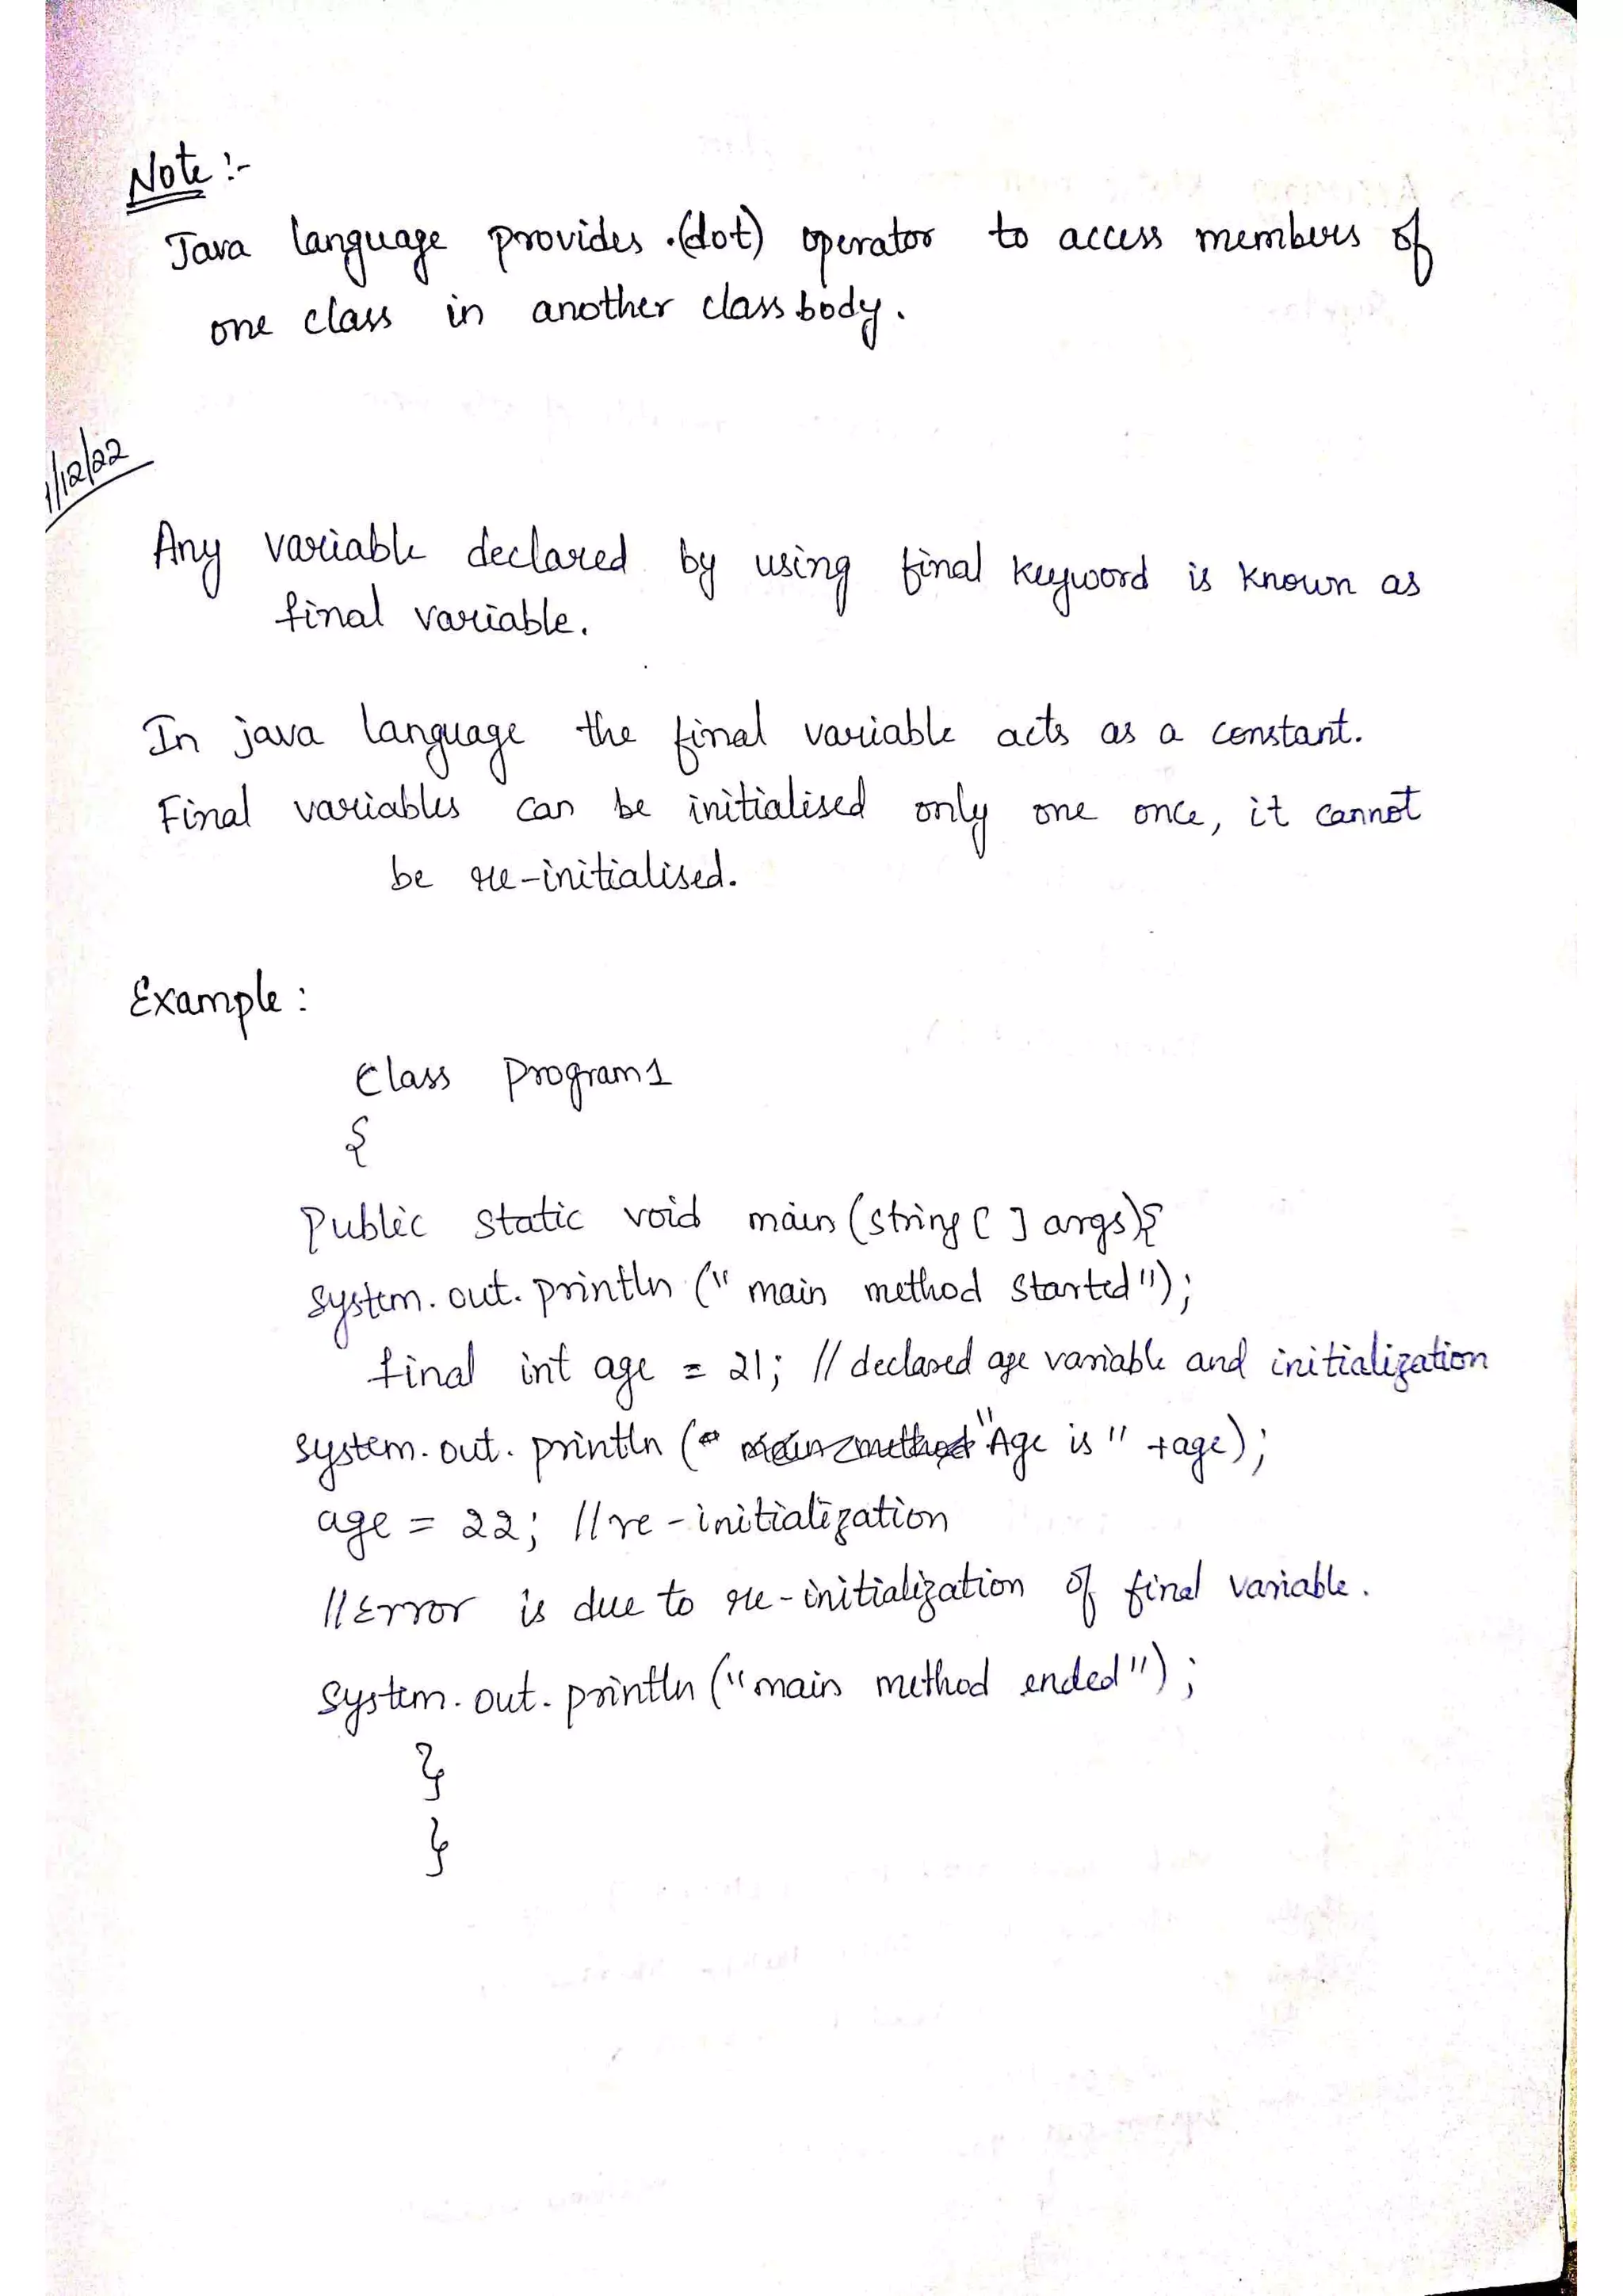 Note :-
Java language provides .(dot) operator to access members of
one class in another class body.
1/12/22
Any variable declared by using final keyword is known as
final variable.
In java language the final variable acts as a constant.
Final variables can be initialised only one once, it cannot
be re-initialised.
Example :
Class Program1
{
Public static void main (string [ ] args){
System.out.println (" main method Started");
final int age = 21; // declared age variable and initialization
System.out.println ( "Age is " +age);
age = 22; //re-initialization
//Error is due to re-initialization of final variable.
System.out.println ("main method ended");
}
}